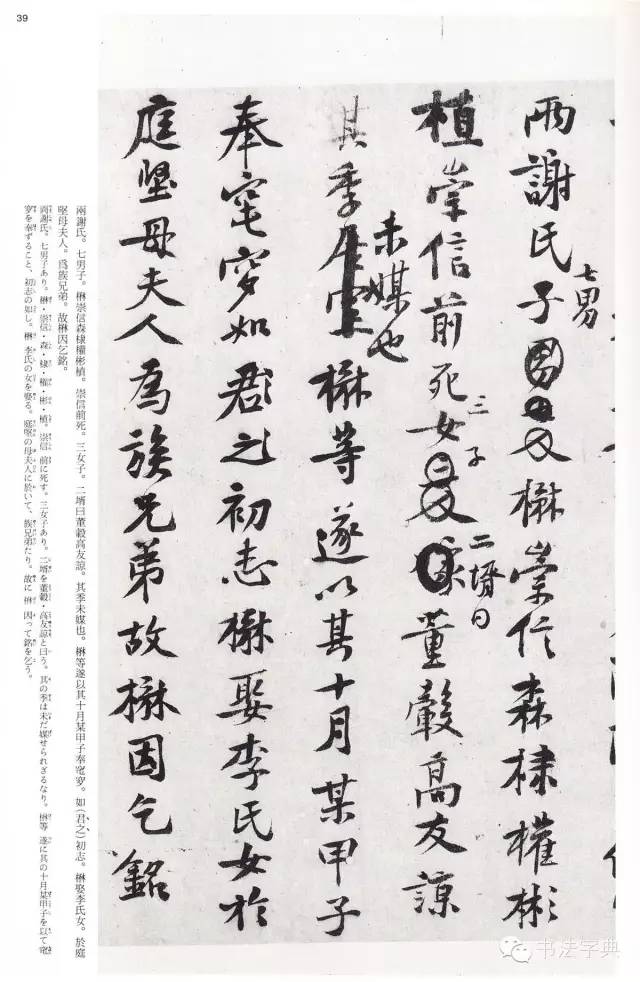 39
兩謝氏七男子楙崇信森棣權彬
植崇信前死三女子二壻曰董瑴高友諒
其季未媒也楙等遂以其十月某甲子
奉窀穸如君之初志楙娶李氏女於
庭堅母夫人為族兄弟故楙因乞銘
兩謝氏。七男子。楙崇信森棣權彬植。崇信前死。三女子。二壻曰董瑴高友諒。其季未媒也。楙等遂以其十月某甲子奉窀穸。如(君之)初志。楙娶李氏女。於庭
堅母夫人。爲族兄弟。故楙因乞銘。
両謝氏。七男子あり。楙・崇信・森・棣・權・彬・植。崇信 前に死す。三女子あり。二壻を董瑴・高友諒と曰う。其の季は未だ媒せられざるなり。楙等 遂に其の十月某甲子を以て窀
穸を奉ずること、初志の如し。楙 李氏の女を娶る。庭堅の母夫人に於いて、族兄弟たり。故に楙 因って銘を乞う。
书法字典